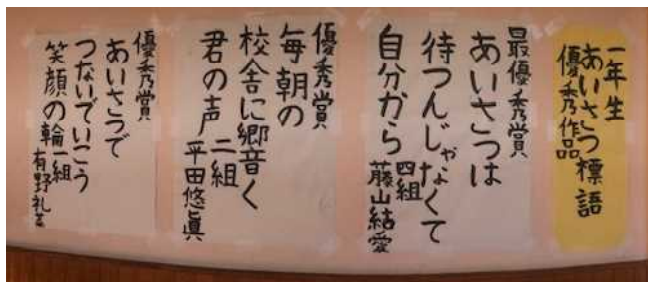 一年生
あいさつ標語
優秀作品
最優秀賞
あいさつは
待つんじゃなくて
自分から
四組
藤山結愛
優秀賞
毎朝の
校舎に響く
君の声
二組
平田悠眞
優秀賞
あいさつで
つないでいこう
笑顔の輪
一組
有野礼